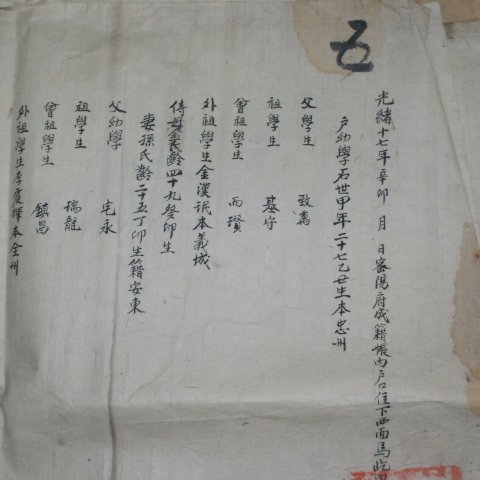 五
光緖十七年辛卯 月 日密陽府成籍帳內戶口住下西面馬屹里
戶幼學石世甲年二十七乙丑生本忠州
父學生 致萬
祖學生 基守
曾祖學生 而瓚
外祖學生金漢珉本義城
侍母金氏齡四十九癸卯生
妻孫氏齡二十五丁卯生籍安東
父幼學 宅永
祖學生 瑞龍
曾祖學生 鎭昌
外祖學生李震燁本全州